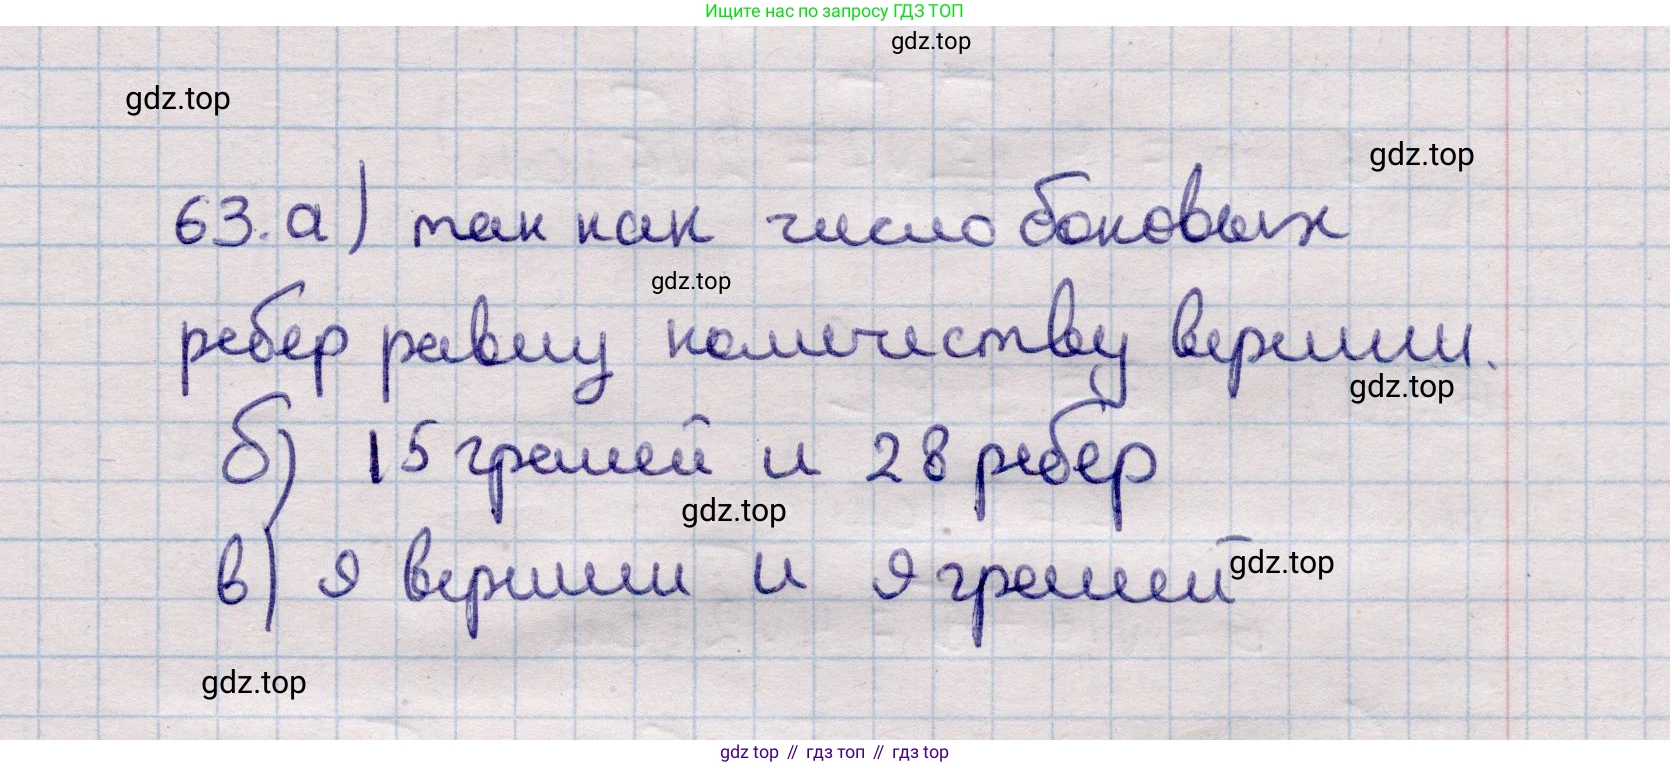 Ищите нас по запросу ГДЗ ТОП
gdz.top
gdz.top
gdz.top
63. а) так как число боковых
gdz.top
ребер равну количеству вершин.
gdz.top
б) 15 граней и 28 ребер
gdz.top
в) 9 вершин и 9 граней
gdz.top
gdz.top
gdz top // гдз топ // гдз top